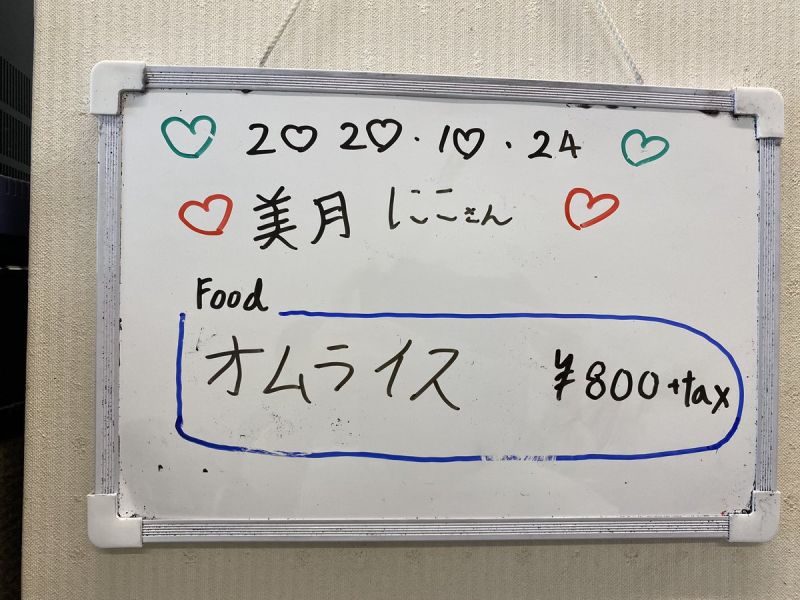 2020.10.24
美月にこさん
Food
オムライス ¥800+tax